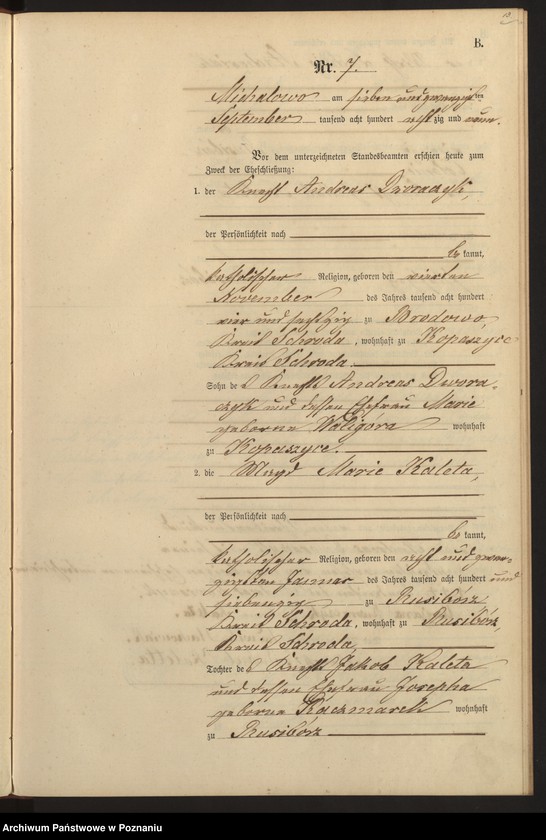 B.
Nr. 7.
Michalowo am sieben und zwanzigsten
September tausend acht hundert achtzig und neun.
Vor dem unterzeichneten Standesbeamten erschien heute zum
Zweck der Eheschließung:
1. der Knecht Andreas Dworaczyk,
der Persönlichkeit nach
be kannt,
katholischer Religion, geboren den vierten
November des Jahres tausend acht hundert
vier und sechzig zu Brodowo,
Kreis Schroda, wohnhaft zu Kopaszyce
Kreis Schroda.
Sohn des Knechts Andreas Dwora-
czyk und dessen Ehefrau Marie
geborne Waligóra wohnhaft
zu Kopaszyce.
2. die Magd Marie Kaleta,
der Persönlichkeit nach
be kannt,
katholischer Religion, geboren den acht und zwan-
zigsten Januar des Jahres tausend acht hundert und
siebenzig zu Rusibórz
Kreis Schroda, wohnhaft zu Rusibórz,
Kreis Schroda,
Tochter des Knechts Jakob Kaleta
und dessen Ehefrau Josepha
geborne Kaczmarek wohnhaft
zu Rusibórz
Archiwum Państwowe w Poznaniu